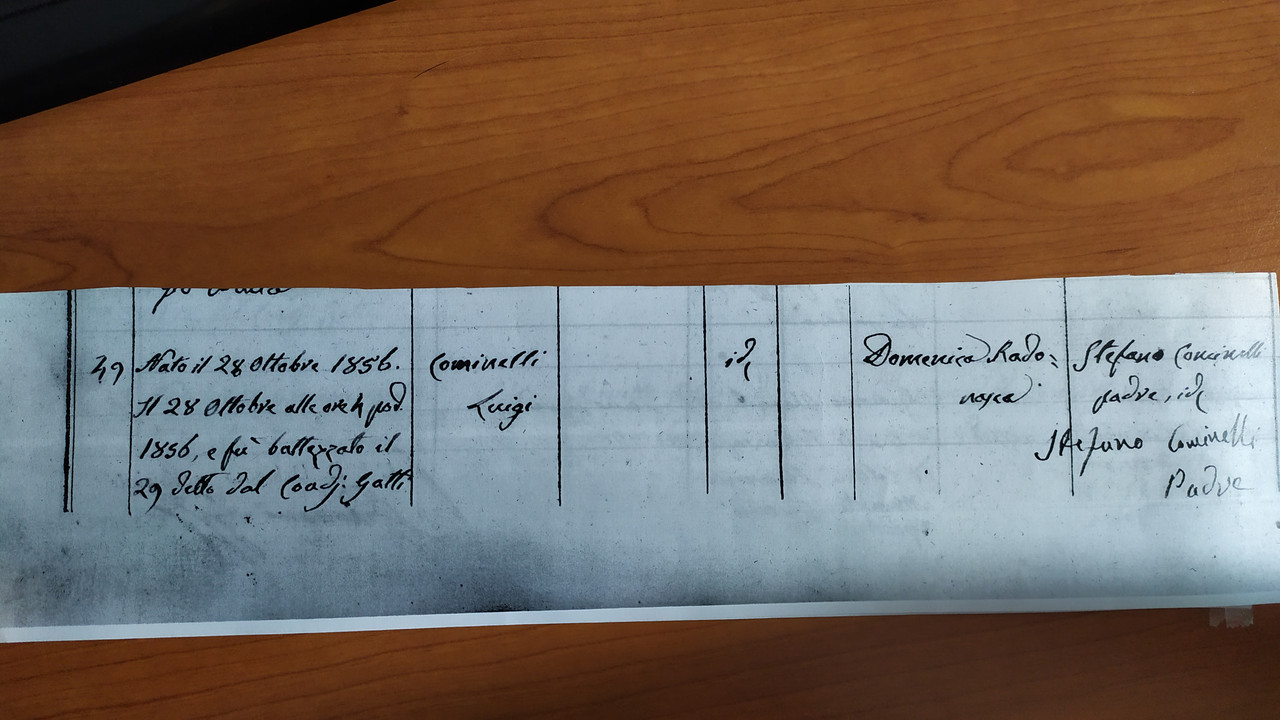 39 Nato il 28 Ottobre 1856.
Il 28 Ottobre alle ore 4 pod.
1856, e fù battezzato il
29 detto dal Coadj: Gatti
Cominelli
Luigi
id
Domenica Rado=
Stefano Cominelli
padre, id
Stefano Cominelli
Padre